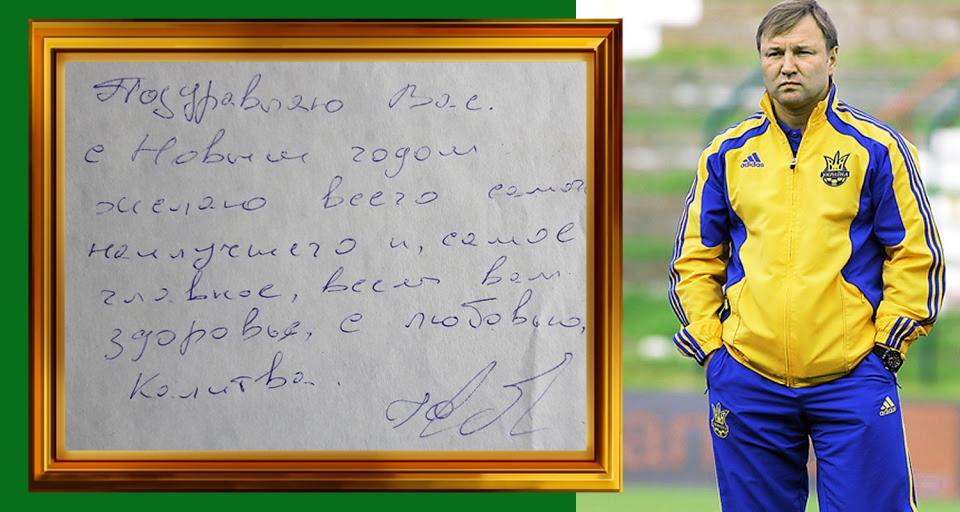 Поздравляю Вас.
с Новым годом
желаю всего самого
наилучшего и, самое
главное, всем вам
здоровья, с любовью,
Калитва.
adidas
УКРАЇНА
adidas